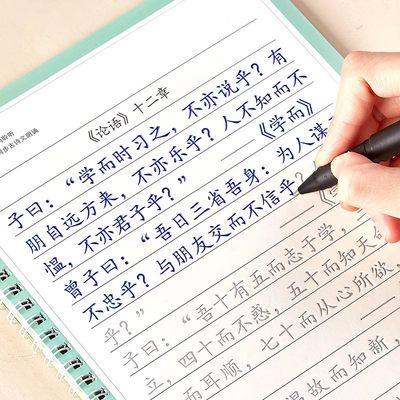 聆听
同步古诗文朗诵
《论语》十二章
子曰：“学而时习之，不亦说乎？有
朋自远方来，不亦乐乎？人不知而不
愠，不亦君子乎？” ——《学而》
曾子曰：“吾日三省吾身：为人谋
不忠乎？与朋友交而不信乎？
乎？” ——《学
子曰：“吾十有五而志于学，
立，四十而不惑，五十而知天命
而耳顺，七十而从心所欲，
温故而知新，